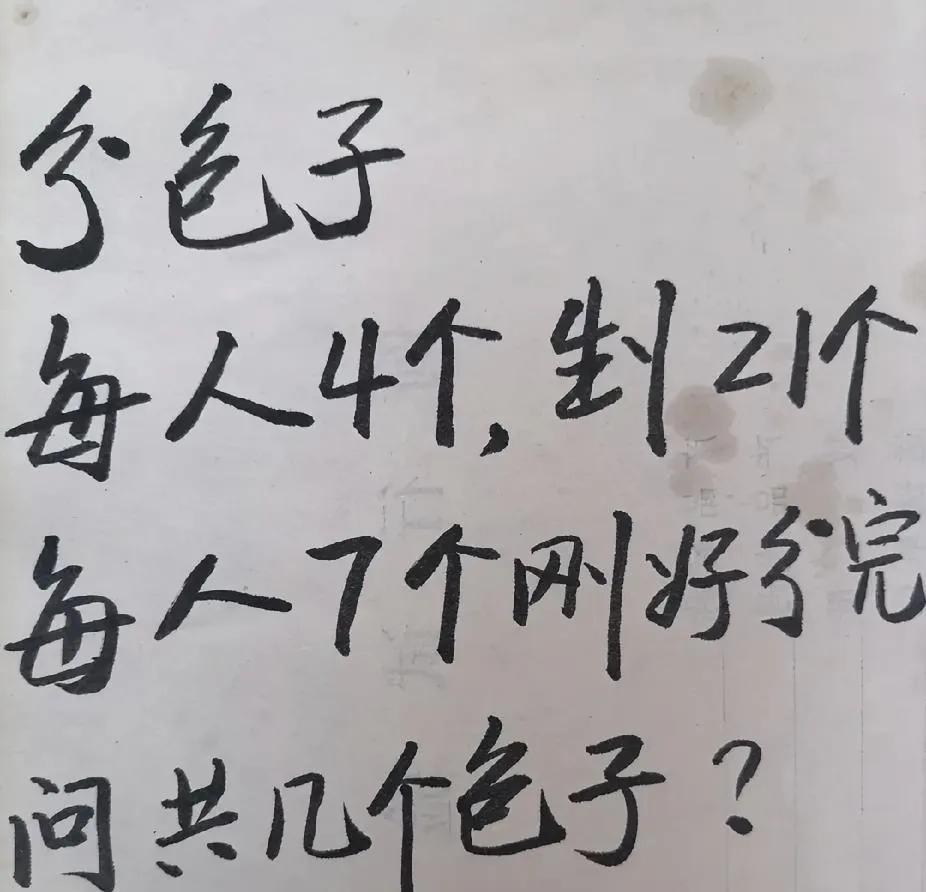 分色子
每人4个,剩21个
每人7个刚好分完
问共几个色子?